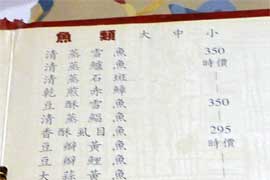 魚類 大 中 小
清蒸雪魚 350
清蒸鱸魚 時價
清蒸石斑 —
乾煎赤鯮 —
豆酥雪魚 350
清蒸鯧魚 —
香酥虱目魚 295
豆瓣黃魚 時價
豆瓣鯉魚 —
大蒜黃魚